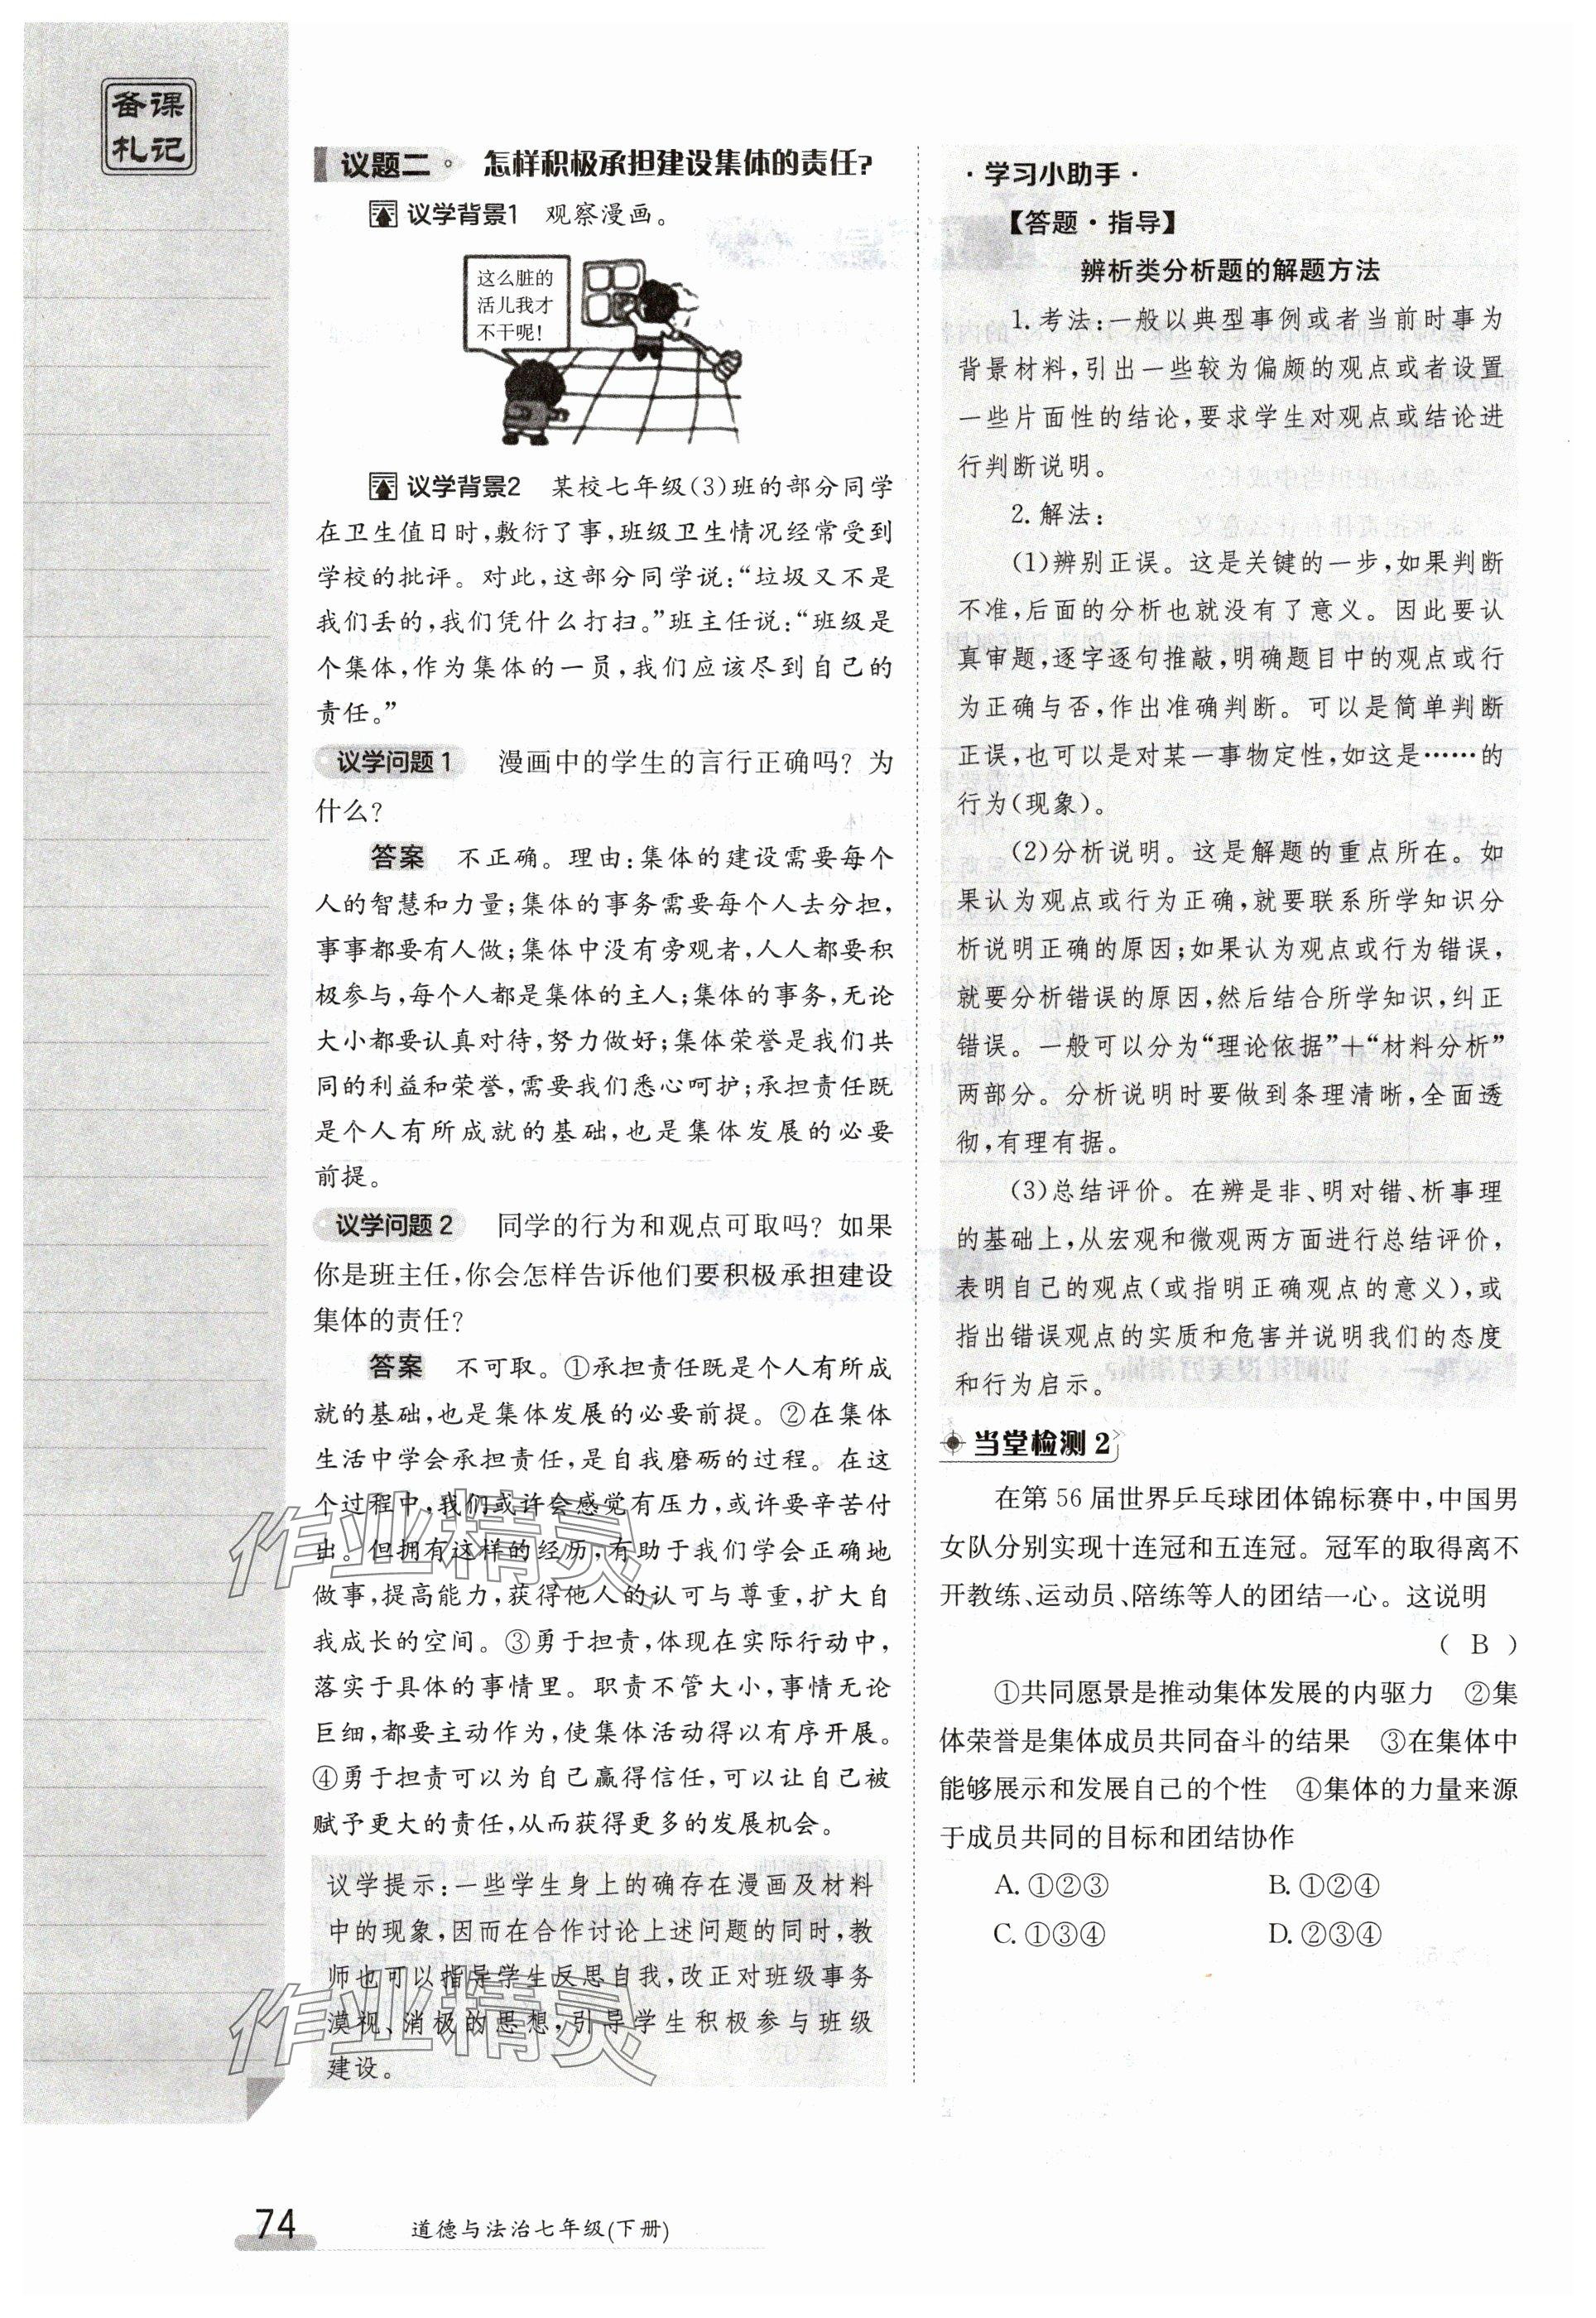 备课
札记
议题二 怎样积极承担建设集体的责任?
议学背景1 观察漫画。
这么脏的
活儿我才
不干呢!
议学背景2 某校七年级(3)班的部分同学
在卫生值日时,敷衍了事,班级卫生情况经常受到
学校的批评。对此,这部分同学说:“垃圾又不是
我们丢的,我们凭什么打扫。”班主任说:“班级是
个集体,作为集体的一员,我们应该尽到自己的
责任。”
议学问题1 漫画中的学生的言行正确吗?为
什么?
答案 不正确。理由:集体的建设需要每个
人的智慧和力量;集体的事务需要每个人去分担,
事事都要有人做;集体中没有旁观者,人人都要积
极参与,每个人都是集体的主人;集体的事务,无论
大小都要认真对待,努力做好;集体荣誉是我们共
同的利益和荣誉,需要我们悉心呵护;承担责任既
是个人有所成就的基础,也是集体发展的必要
前提。
议学问题2 同学的行为和观点可取吗?如果
你是班主任,你会怎样告诉他们要积极承担建设
集体的责任?
答案 不可取。①承担责任既是个人有所成
就的基础,也是集体发展的必要前提。②在集体
生活中学会承担责任,是自我磨砺的过程。在这
个过程中,我们或许会感觉有压力,或许要辛苦付
出。但拥有这样的经历,有助于我们学会正确地
做事,提高能力,获得他人的认可与尊重,扩大自
我成长的空间。③勇于担责,体现在实际行动中,
落实于具体的事情里。职责不管大小,事情无论
巨细,都要主动作为,使集体活动得以有序开展。
④勇于担责可以为自己赢得信任,可以让自己被
赋予更大的责任,从而获得更多的发展机会。
议学提示:一些学生身上的确存在漫画及材料
中的现象,因而在合作讨论上述问题的同时,教
师也可以指导学生反思自我,改正对班级事务
漠视、消极的思想,引导学生积极参与班级
建设。
·学习小助手·
【答题·指导】
辨析类分析题的解题方法
1.考法:一般以典型事例或者当前时事为
背景材料,引出一些较为偏颇的观点或者设置
一些片面性的结论,要求学生对观点或结论进
行判断说明。
2.解法:
(1)辨别正误。这是关键的一步,如果判断
不准,后面的分析也就没有了意义。因此要认
真审题,逐字逐句推敲,明确题目中的观点或行
为正确与否,作出准确判断。可以是简单判断
正误,也可以是对某一事物定性,如这是……的
行为(现象)。
(2)分析说明。这是解题的重点所在。如
果认为观点或行为正确,就要联系所学知识分
析说明正确的原因;如果认为观点或行为错误,
就要分析错误的原因,然后结合所学知识,纠正
错误。一般可以分为“理论依据”+“材料分析”
两部分。分析说明时要做到条理清晰,全面透
彻,有理有据。
(3)总结评价。在辨是非、明对错、析事理
的基础上,从宏观和微观两方面进行总结评价,
表明自己的观点(或指明正确观点的意义),或
指出错误观点的实质和危害并说明我们的态度
和行为启示。
当堂检测2
在第56届世界乒乓球团体锦标赛中,中国男
女队分别实现十连冠和五连冠。冠军的取得离不
开教练、运动员、陪练等人的团结一心。这说明
( B )
①共同愿景是推动集体发展的内驱力 ②集
体荣誉是集体成员共同奋斗的结果 ③在集体中
能够展示和发展自己的个性 ④集体的力量来源
于成员共同的目标和团结协作
A.①②③ B.①②④
C.①③④ D.②③④
作业精灵
作业精灵
74 道德与法治七年级(下册)